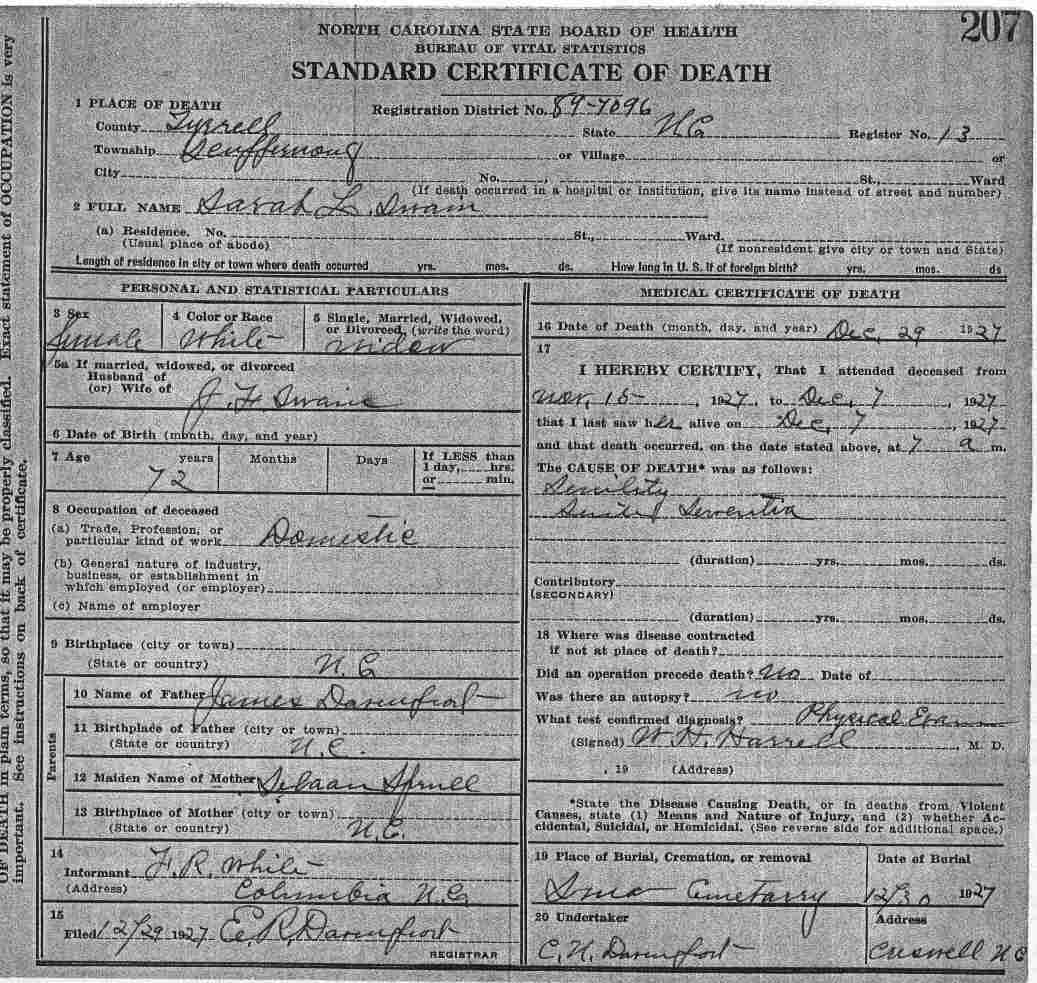 207
NORTH CAROLINA STATE BOARD OF HEALTH
BUREAU OF VITAL STATISTICS
STANDARD CERTIFICATE OF DEATH
1 PLACE OF DEATH
Registration District No. 89-7096
County Tyrrell State N.C. Register No. 13
Township or Village or
City No. , St., Ward
(If death occurred in a hospital or institution, give its name instead of street and number)
2 FULL NAME Sarah L. Swain
(a) Residence. No. St., Ward.
(Usual place of abode) (If nonresident give city or town and State)
Length of residence in city or town where death occurred yrs. mos. ds. How long in U. S. if of foreign birth? yrs. mos. ds
PERSONAL AND STATISTICAL PARTICULARS
3 Sex 4 Color or Race 5 Single, Married, Widowed,
or Divorced, (write the word)
female White widow
5a If married, widowed, or divorced
Husband of
(or) Wife of J. F. Swain
6 Date of Birth (month, day, and year)
7 Age years Months Days If LESS than
1 day, hrs.
or min.
72
8 Occupation of deceased
(a) Trade, Profession, or
particular kind of work Domestic
(b) General nature of industry,
business, or establishment in
which employed (or employer)
(c) Name of employer
9 Birthplace (city or town)
(State or country) N.C.
Parents
10 Name of Father James Davenport
11 Birthplace of Father (city or town)
(State or country) N.C.
12 Maiden Name of Mother Spruell
13 Birthplace of Mother (city or town)
(State or country) N.C.
14
Informant F. R. White
(Address) Columbia N.C.
15
Filed 12/29 1927 E. R. Davenport
REGISTRAR
MEDICAL CERTIFICATE OF DEATH
16 Date of Death (month, day, and year) Dec. 29 1927
17
I HEREBY CERTIFY, That I attended deceased from
Nov. 15 , 1927, to Dec. 7 , 1927
that I last saw her alive on Dec. 7 , 1927
and that death occurred, on the date stated above, at 7 a m.
The CAUSE OF DEATH* was as follows:
Senility
Senile Dementia
(duration) yrs. mos. ds.
Contributory
(SECONDARY)
(duration) yrs. mos. ds.
18 Where was disease contracted
if not at place of death?
Did an operation precede death? No Date of
Was there an autopsy? no
What test confirmed diagnosis? Physical Exam
(Signed) W. H. Harrell , M. D.
, 19 (Address)
*State the Disease Causing Death, or in deaths from Violent
Causes, state (1) Means and Nature of Injury, and (2) whether Ac-
cidental, Suicidal, or Homicidal. (See reverse side for additional space.)
19 Place of Burial, Cremation, or removal Date of Burial
Cemetarry 12/30 1927
20 Undertaker Address
C. N. Davenport Creswell N C
OF DEATH in plain terms, so that it may be properly classified. Exact statement of OCCUPATION is very
important. See instructions on back of certificate.